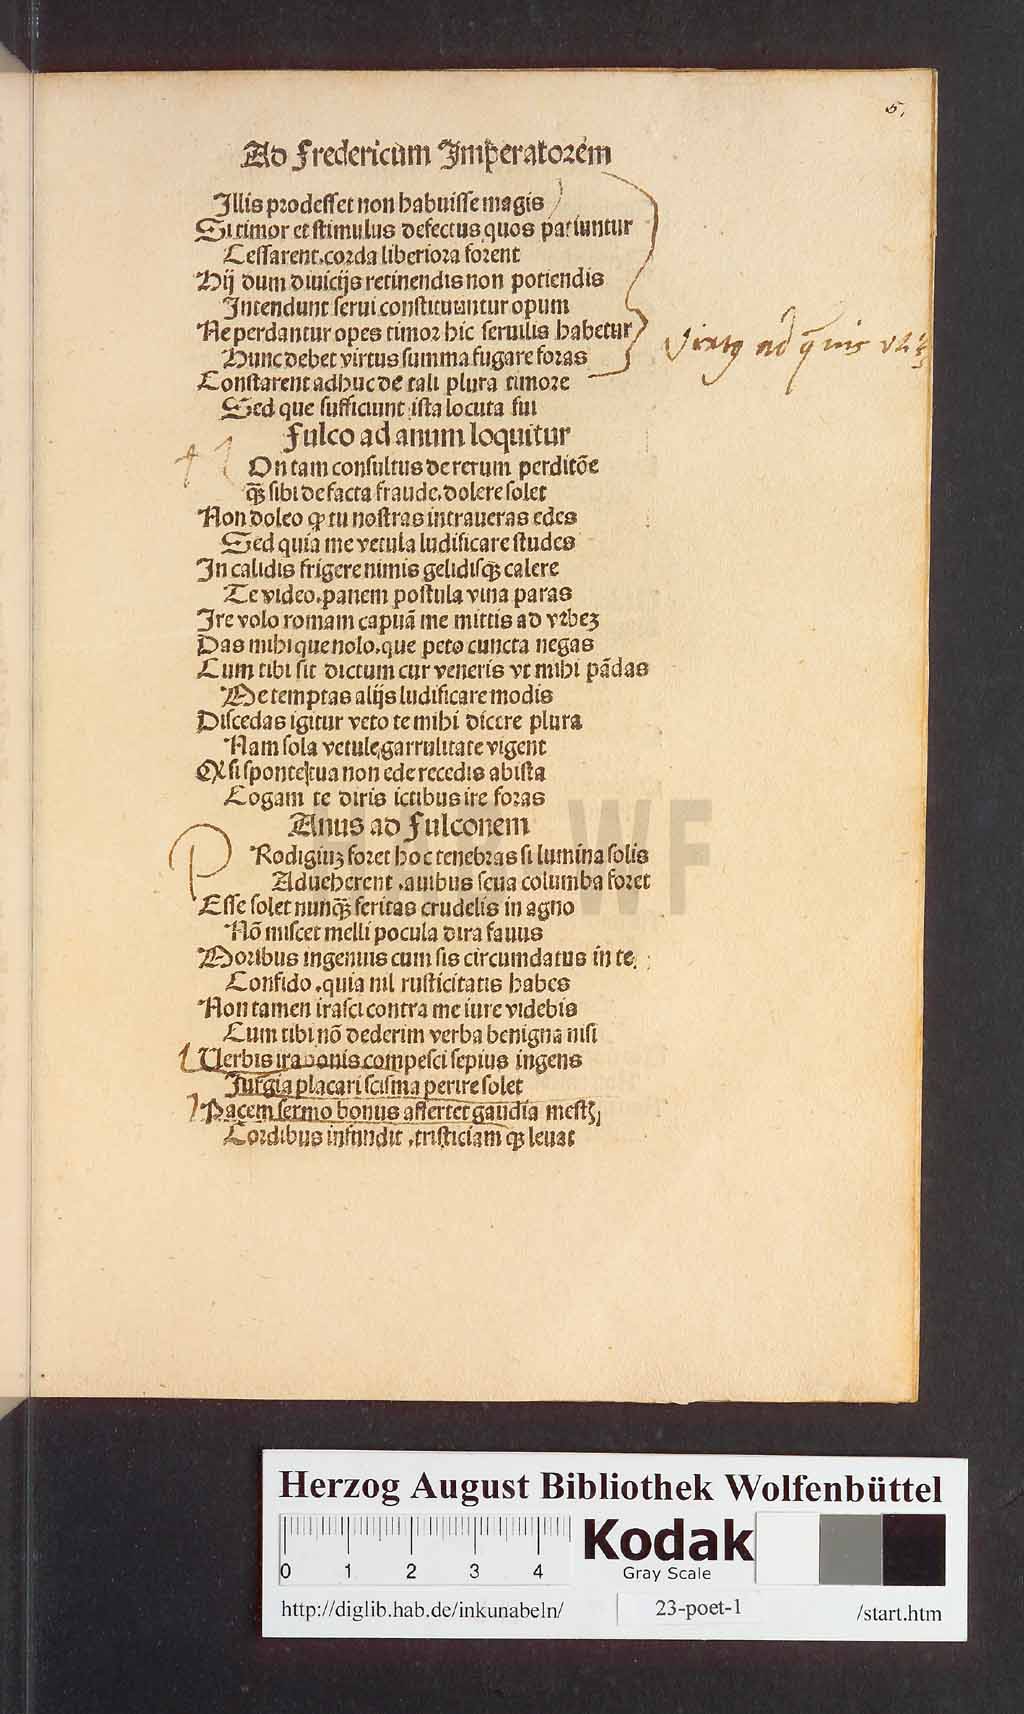 5,
Ad Fredericum Imperatorem
Illis prodesset non habuisse magis
Si timor et stimulus defectus quos patiuntur
Cessarent, corda liberiora forent
Hij dum diuicijs retinendis non potiendis
Intendunt serui constituuntur opum
Ne perdantur opes timor hic seruilis habetur
Hunc debet virtus summa fugare foras
Constarent adhuc de tali plura timore
Sed que sufficiunt ista locuta fui
Fulco ad anum loquitur
On tam consultus de rerum perditōe
qȝ sibi de facta fraude, dolere solet
Non doleo ꝙ tu nostras intraueras edes
Sed quia me vetula ludificare studes
In calidis frigere nimis gelidisqȝ calere
Te video, panem postula vina paras
Ire volo romam capuā me mittis ad vrbeȝ
Das mihi que nolo, que peto cuncta negas
Cum tibi sit dictum cur veneris vt mihi pādas
Me temptas alijs ludificare modis
Discedas igitur veto te mihi dicere plura
Nam sola vetule garrulitate vigent
Qȝ si sponte tua non ede recedis ab ista
Cogam te diris ictibus ire foras
Anus ad Fulconem
P Rodigiuȝ foret hoc tenebras si lumina solis
Adueherent, auibus seua columba foret
Esse solet nunqȝ̄ feritas crudelis in agno
Nō miscet melli pocula dira fauus
Moribus ingenuis cum sis circumdatus in te
Confido, quia nil rusticitatis habes
Non tamen irasci contra me iure videbis
Cum tibi nō dederim verba benigna nisi
Uerbis ira bonis compesci sepius ingens
Iurgia placari scisma perire solet
Pacem sermo bonus affert et gaudia mestꝭ
Cordibus infundit, tristiciam qȝ leuat
HAB WF
Herzog August Bibliothek Wolfenbüttel
0 1 2 3 4
Kodak
Gray Scale
http://diglib.hab.de/inkunabeln/ 23-poet-1 /start.htm